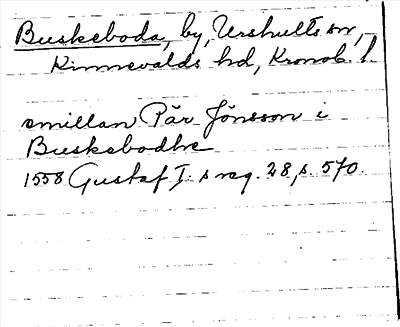 Buskeboda, by, Urshults sn,
Kinnevalds hd, Kronob. l.
emillan Pär Jönsson i
Buskebodhe
1558 Gustaf I:s reg. 28, s. 570.